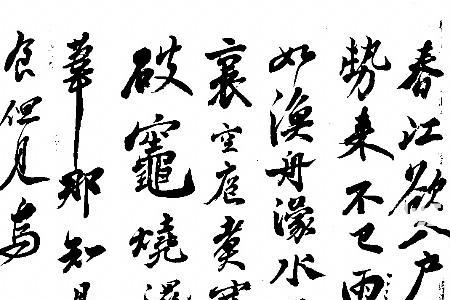 春江欲入戶
勢来不已雨
如漁舟濛水
裏空庖煮
破竈燒
葦那知
食但見烏